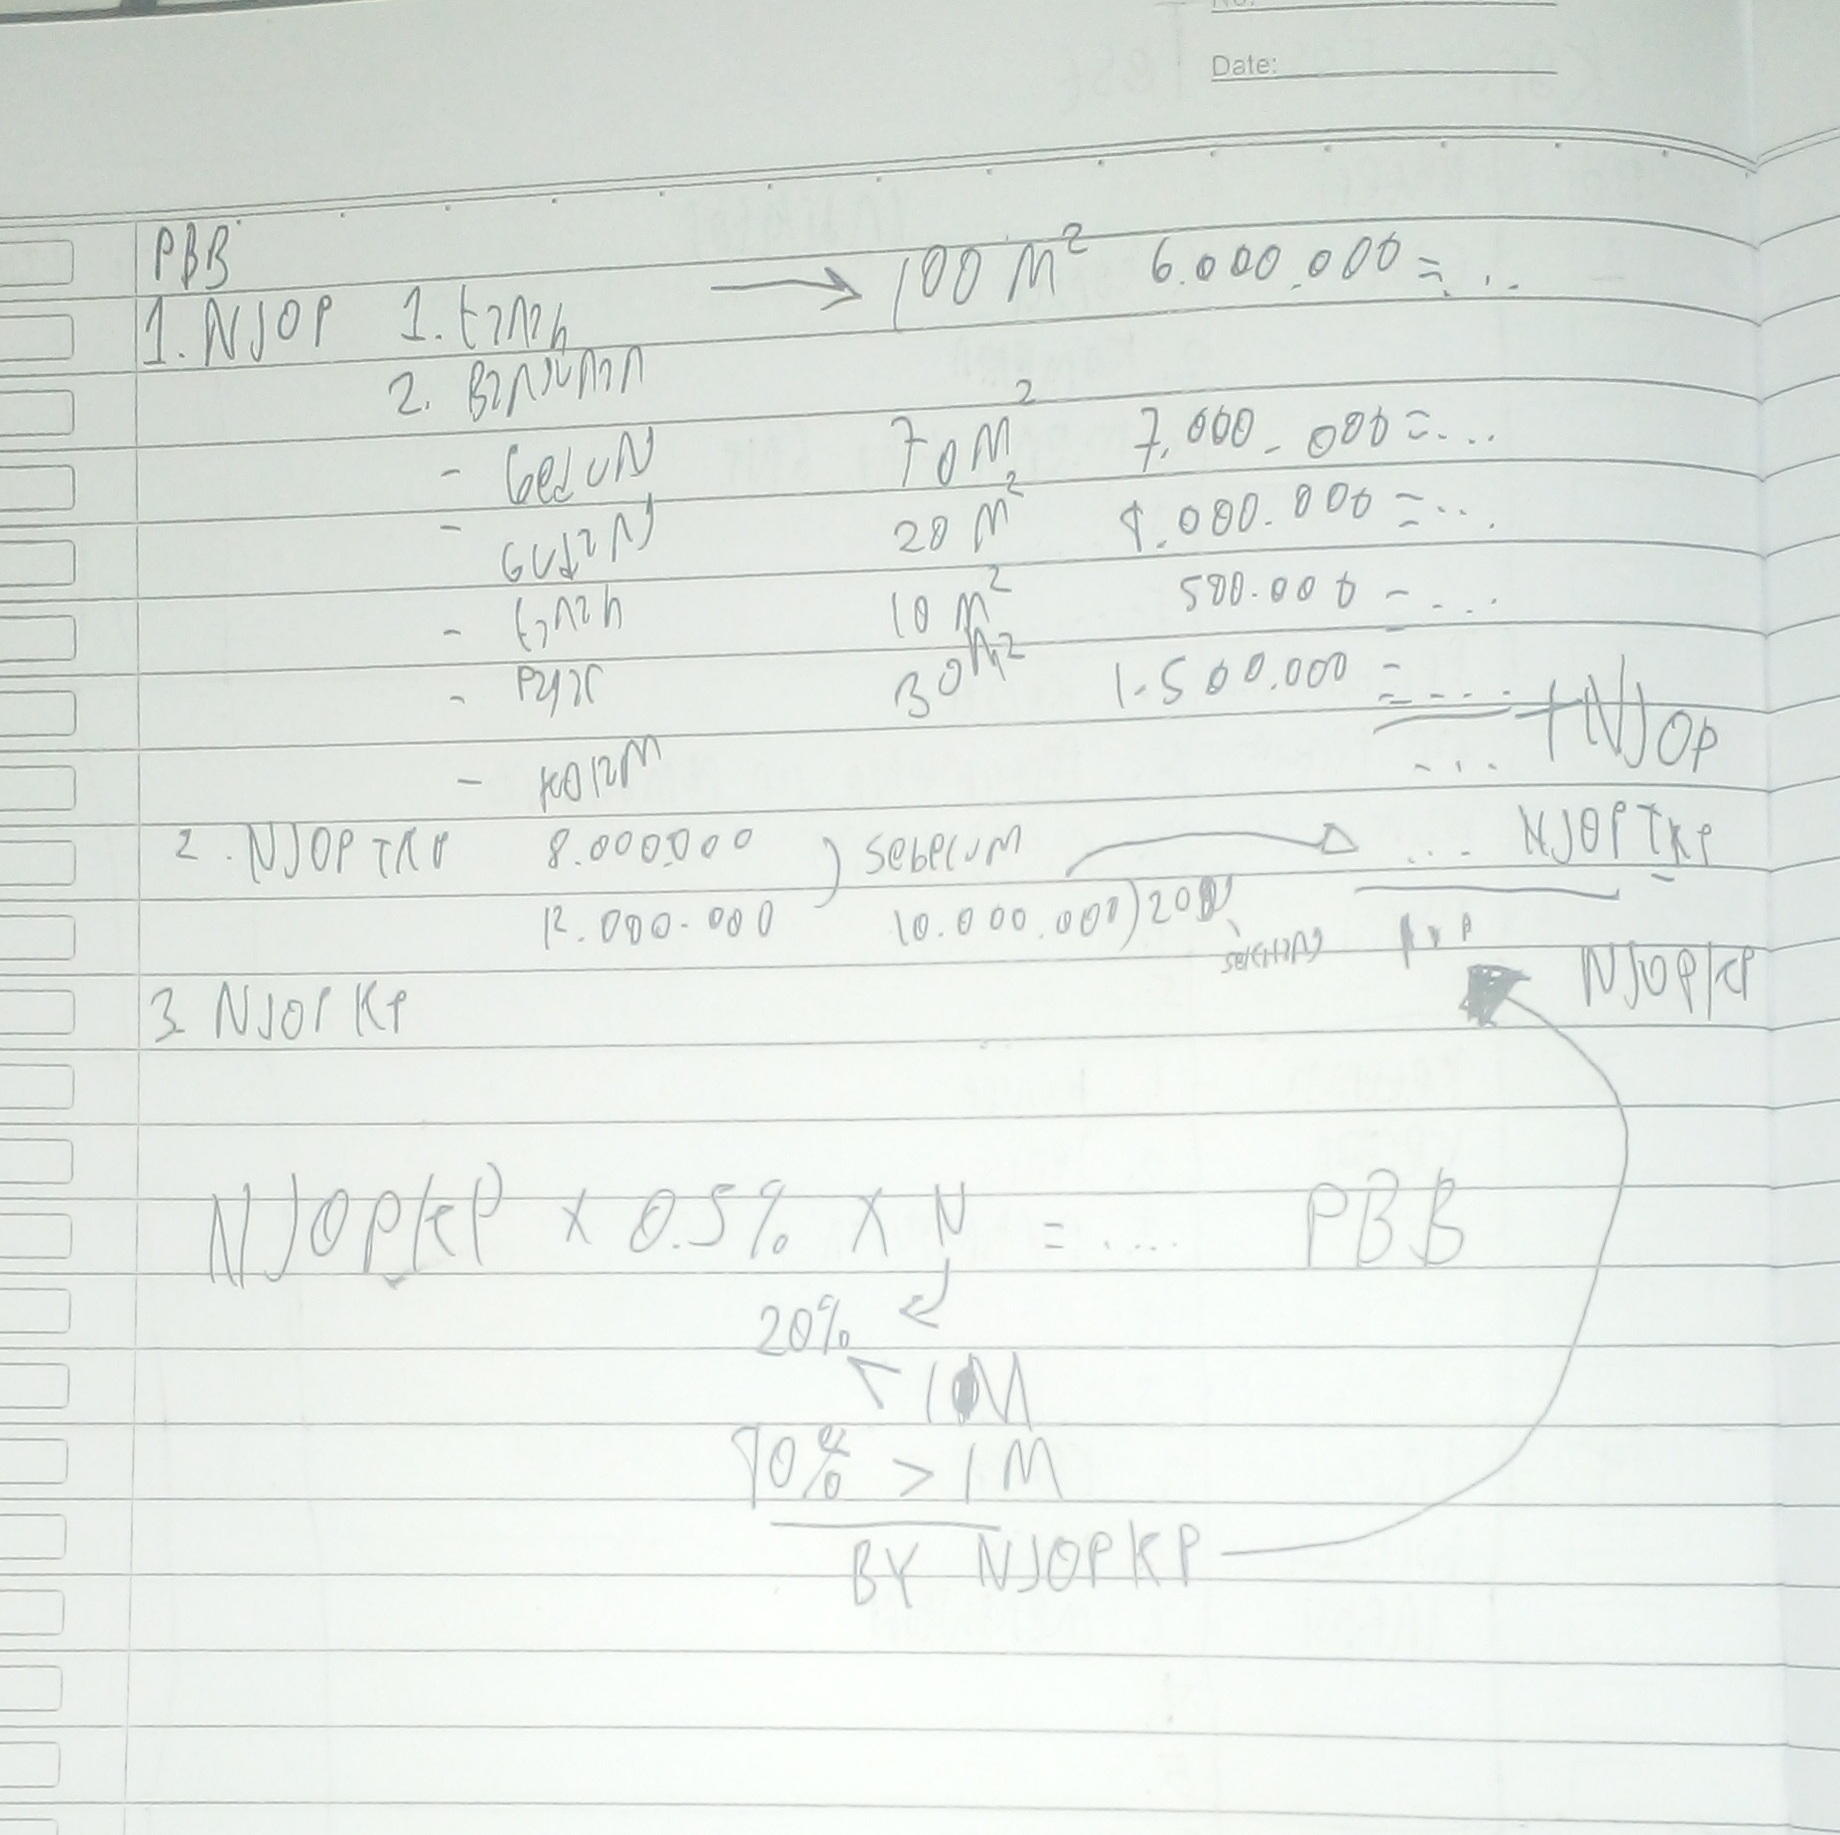 Date:
PBB
1. NJOP 1. tanah → 100 M² 6.000.000 = ...
2. Bangunan
- Gedung 70 M² 7.000.000 = ...
- Gudang 20 M² .000.000 = ...
- tanah 10 M² 500.000 = ...
- Pajak 30 M² 1.500.000 = ... + NJOP
- kolam ...
2. NJOPTKP 8.000.000 ) sebelum → ... NJOPTKP
12.000.000 10.000.000) NJOPKP
3 NJOPKP
NJOPKP x 0.5% x N = .... PBB
20%
< 1 M
> 1 M
BY NJOPKP